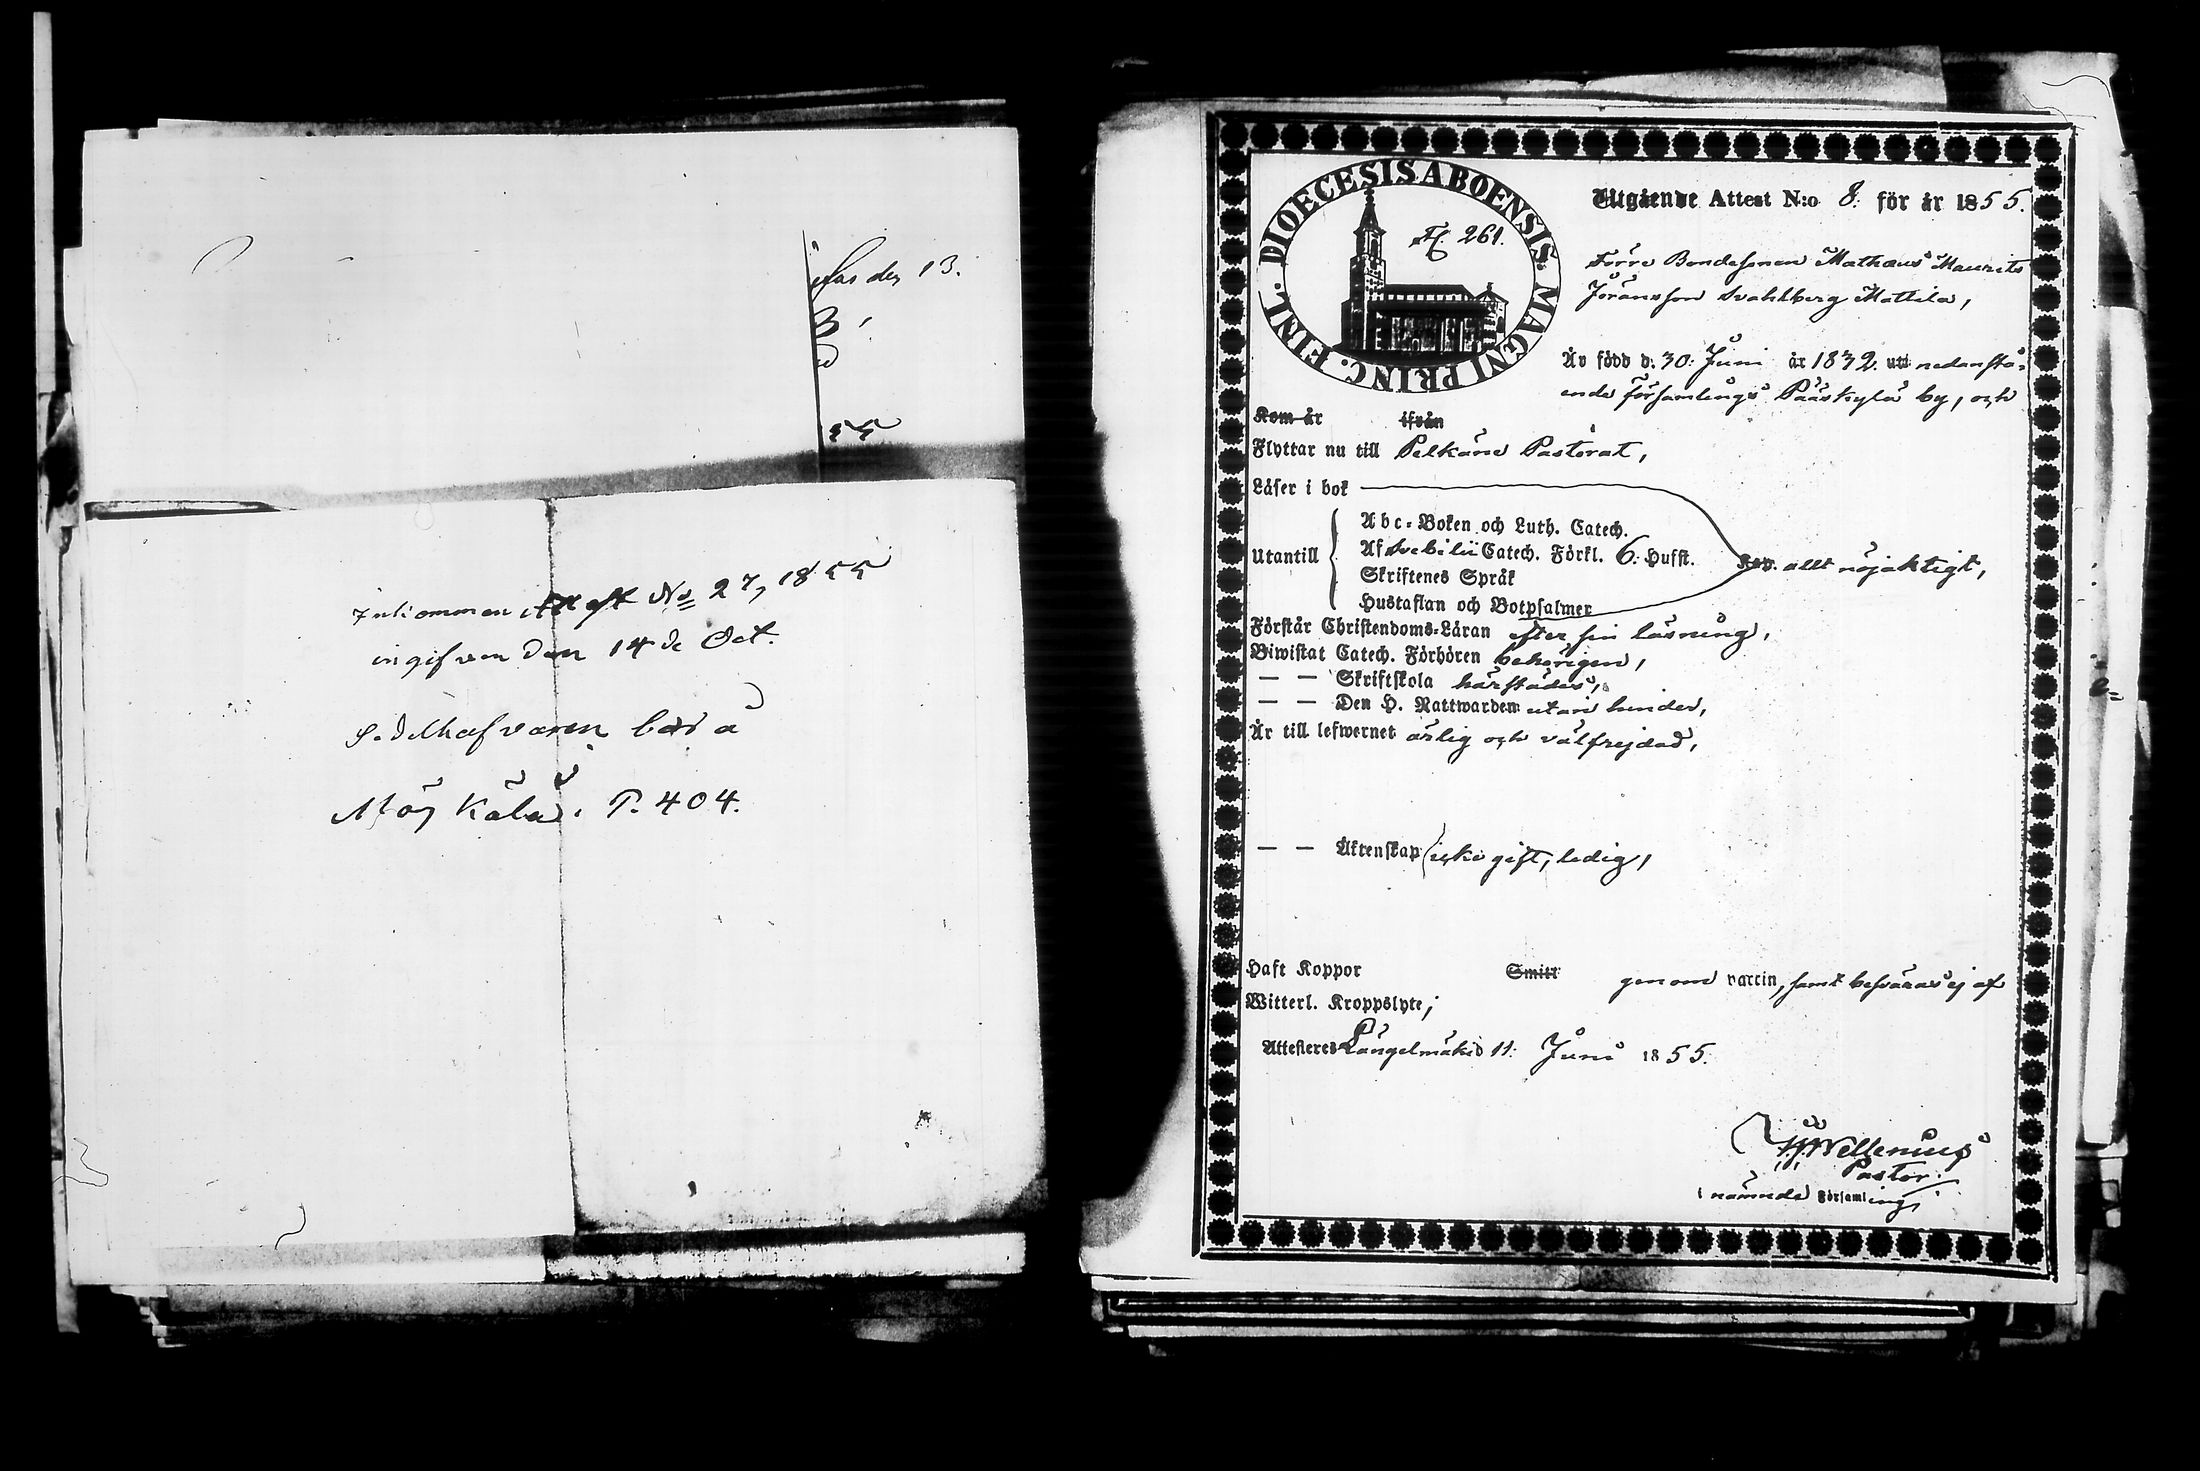 den 13.
55
Inkommen Attest No 27, 1855
ingifven den 14de Oct.
Sedelhafvaren bor å
P. 404.
DIOECESIS ABOENSIS. MAGNI PRINC. FINL.
261.
Utgående Attest N:o 8: för år 1855.
Förre Bondesonen Mathæus Maurits
Jöransson Svahlberg Mattila,
Är född d. 30: Juni år 1832. uti nedanstå-
ende församlings Pääskylä by, och
Kom år ifrån
Flyttar nu till Pelkäne Pastorat,
Läser i bok
Abc-Boken och Luth. Catech.
Utantill Af Svebilii Catech. Förkl. 6: Hufst. allt nöjaktigt,
Skriftenes Språk
Hustaflan och Botpsalmer
Förstår Christendoms-Läran efter sin läsning,
Biwistat Catech. Förhören behörigen,
— — Skriftskola härstädes,
— — Den H. Nattwarden utan hinder,
Är till lefwernet ärlig och välfrejdad,
— — Äktenskap icke gift, ledig,
Haft Koppor Smitt genom vaccin, samt besväras ej af
Witterl. Kroppslyte;
Attesteres Längelmäki d 11: Juni 1855.
Wellenius
Pastor.
i nämnde Församling.